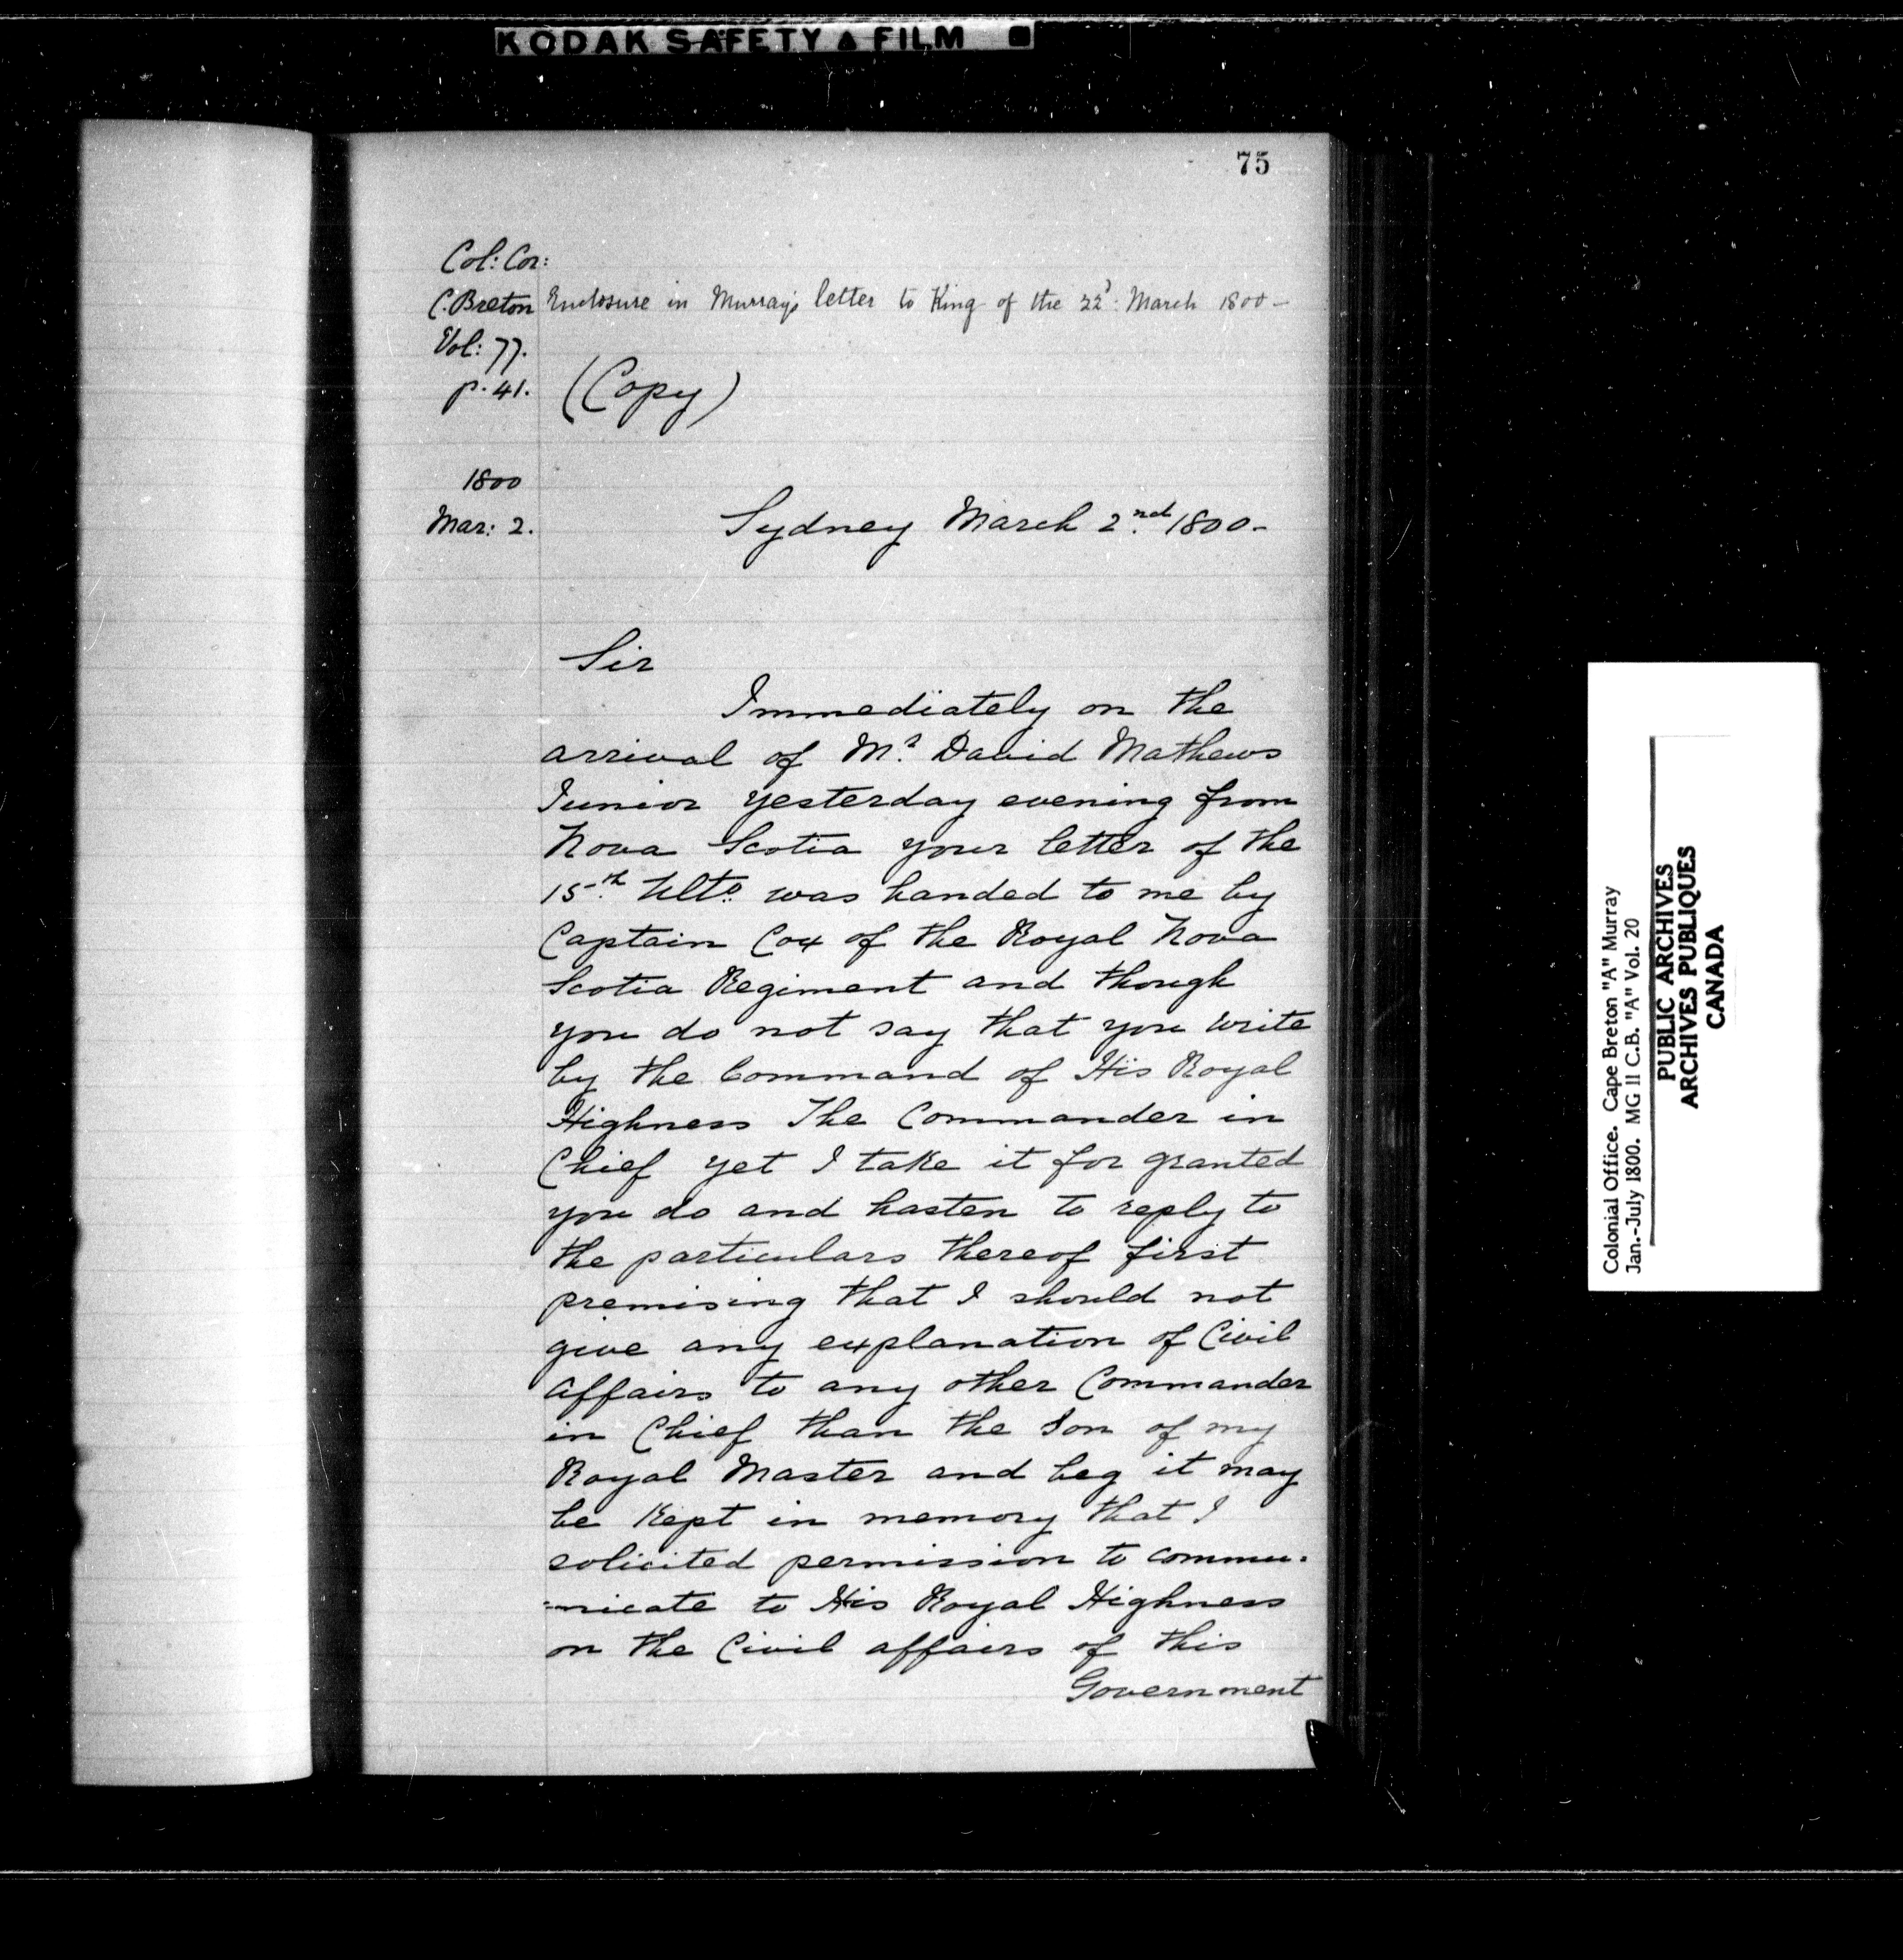 KODAK SAFETY FILM
75
Col: Cor:
C. Breton
Vol: 77.
p. 41.
Enclosure in Murray's letter to King of the 22d: March 1800—
(Copy)
1800
Mar: 2.
Sydney March 2nd. 1800—
Sir
Immediately on the
arrival of Mr. David Mathews
Junior yesterday evening from
Nova Scotia your letter of the
15th. Ulto. was handed to me by
Captain Cox of the Royal Nova
Scotia Regiment and though
you do not say that you write
by the Command of His Royal
Highness The Commander in
Chief yet I take it for granted
you do and hasten to reply to
the particulars thereof first
premising that I should not
give any explanation of Civil
affairs to any other Commander
in Chief than the Son of my
Royal Master and beg it may
be Kept in memory that I
solicited permission to commu-
=nicate to His Royal Highness
on the Civil affairs of this
Government
Colonial Office. Cape Breton "A" Murray
Jan.-July 1800. MG 11 C.B. "A" Vol. 20
PUBLIC ARCHIVES
ARCHIVES PUBLIQUES
CANADA